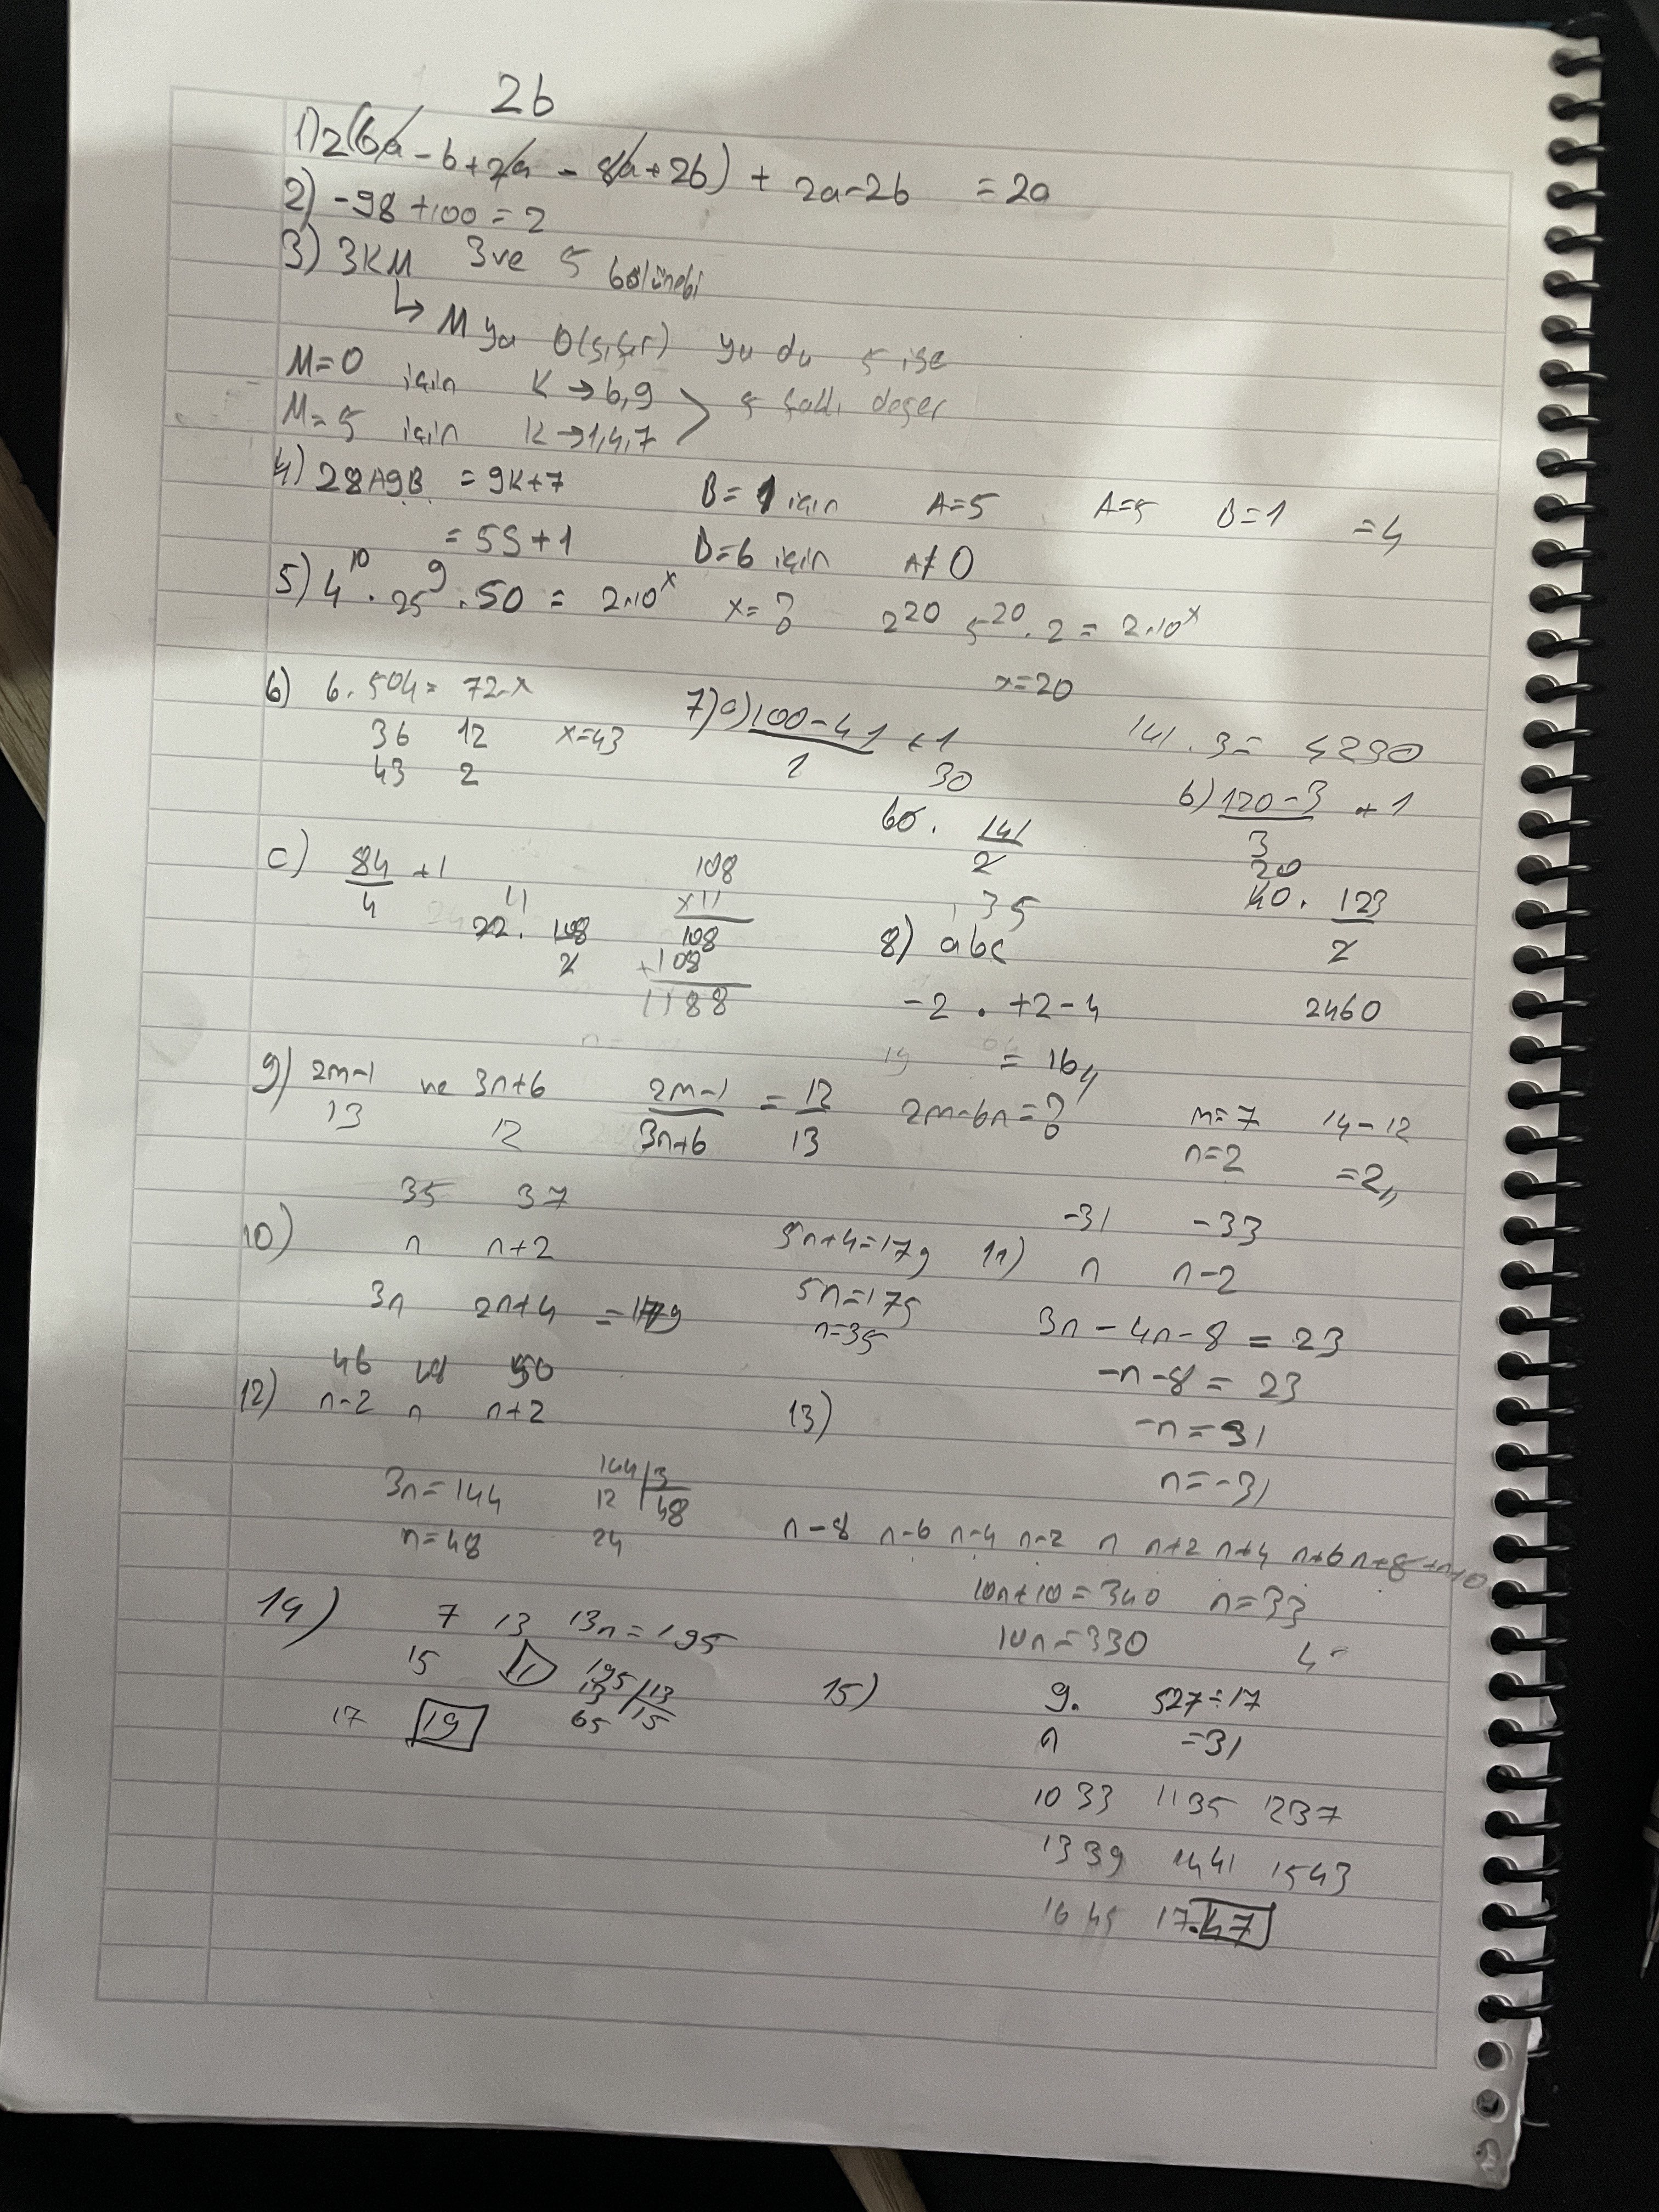 2b
1) 2(6a - b + 2a - 8a + 2b) + 2a - 2b = 2a
2) -98 + 100 = 2
3) 3KM 3 ve 5 bölünebi
↳ M ya 0(sıfır) ya da 5 ise
M=0 için K → 6,9
M=5 için K → 1,4,7 > 5 farklı değer
4) 28A9B = 9K+7 B=1 için A=5 A=5 B=1 = 4
= 5S+1 B=6 için A≠0
5) 4^10 . 25^9 . 50 = 2.10^x x=? 2^20 5^20 . 2 = 2.10^x
x=20
6) 6. 504 = 72.x
36 12 x=43
43 2
7) a) (100-41)/1 + 1 141 . 3 = 4230
30
60 . 141/2
b) (120-3)/3 + 1
20
40 . 123/2
2460
c) 84/4 + 1
11
22 . 108/2
108
x11
108
+108
1188
35
8) abc
-2 . +2-4
= 164
9) 2m-1 ve 3n+6 (2m-1)/(3n+6) = 12/13 2m-6n=? m=7 14-12
13 12 n=2 =2
35 37
10) n n+2 5n+4=179
3n 2n+4 = 179 5n=175
n=35
-31 -33
11) n n-2
3n - 4n - 8 = 23
-n - 8 = 23
-n = 31
n = -31
46 48 50
12) n-2 n n+2
3n = 144 144 | 3
n = 48 12 48
24
13)
n-8 n-6 n-4 n-2 n n+2 n+4 n+6 n+8 + n+10
10n+10 = 340 n = 33
10n = 330
14) 7 13 13n = 195
15 11 195 | 13
13 15
17 19 65
15) 9. 527÷17
n =31
10 33 11 35 12 37
13 39 14 41 15 43
16 45 17. 47